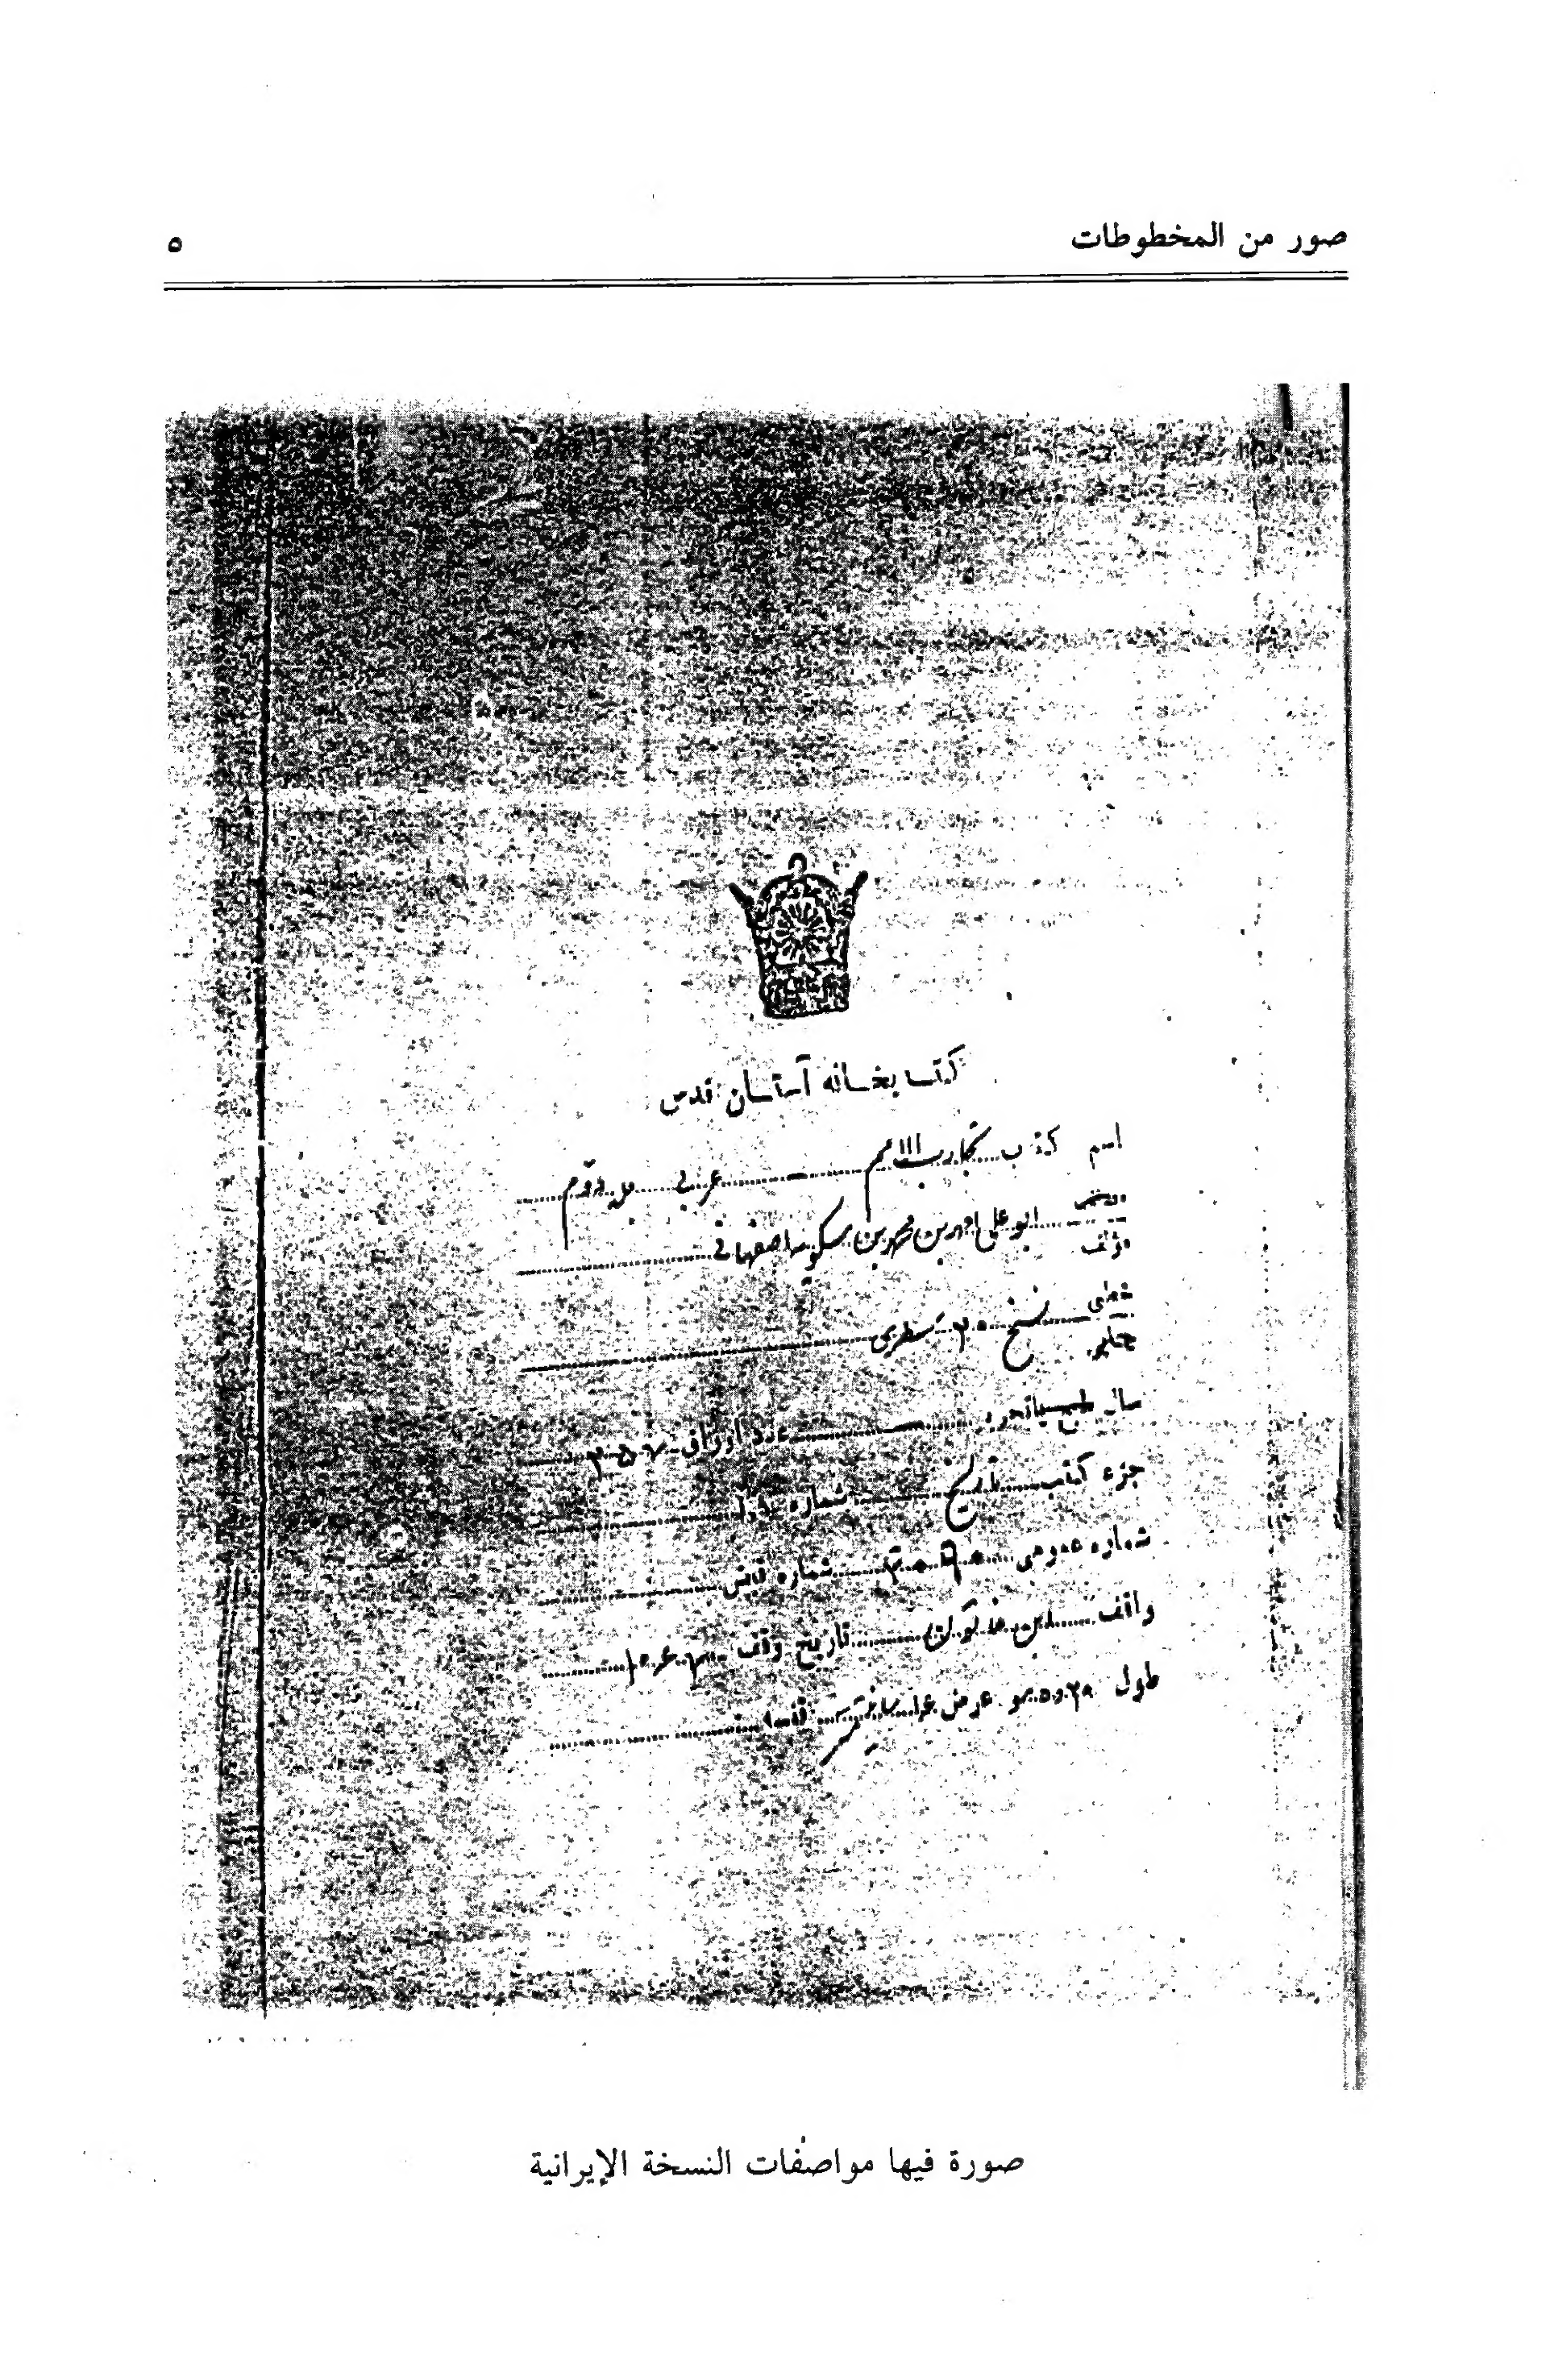 صور من المخطوطات ٥
كتابخانه آستان قدس
اسم كتاب تجارب الامم عربى جلد دوم
مصنف
مؤلف ابو على احمد بن محمد بن مسكويه اصفهانى
خطى
چاپى نسخ ٢٠ سطرى
سال طبع يا تحرير عدد اوراق
جزء كتب تاريخ شماره
شماره عمومى شماره قبض
واقف ابن خاتون تاريخ وقف
طول عرض سانتيمتر قفسه
صورة فيها مواصفات النسخة الإيرانية